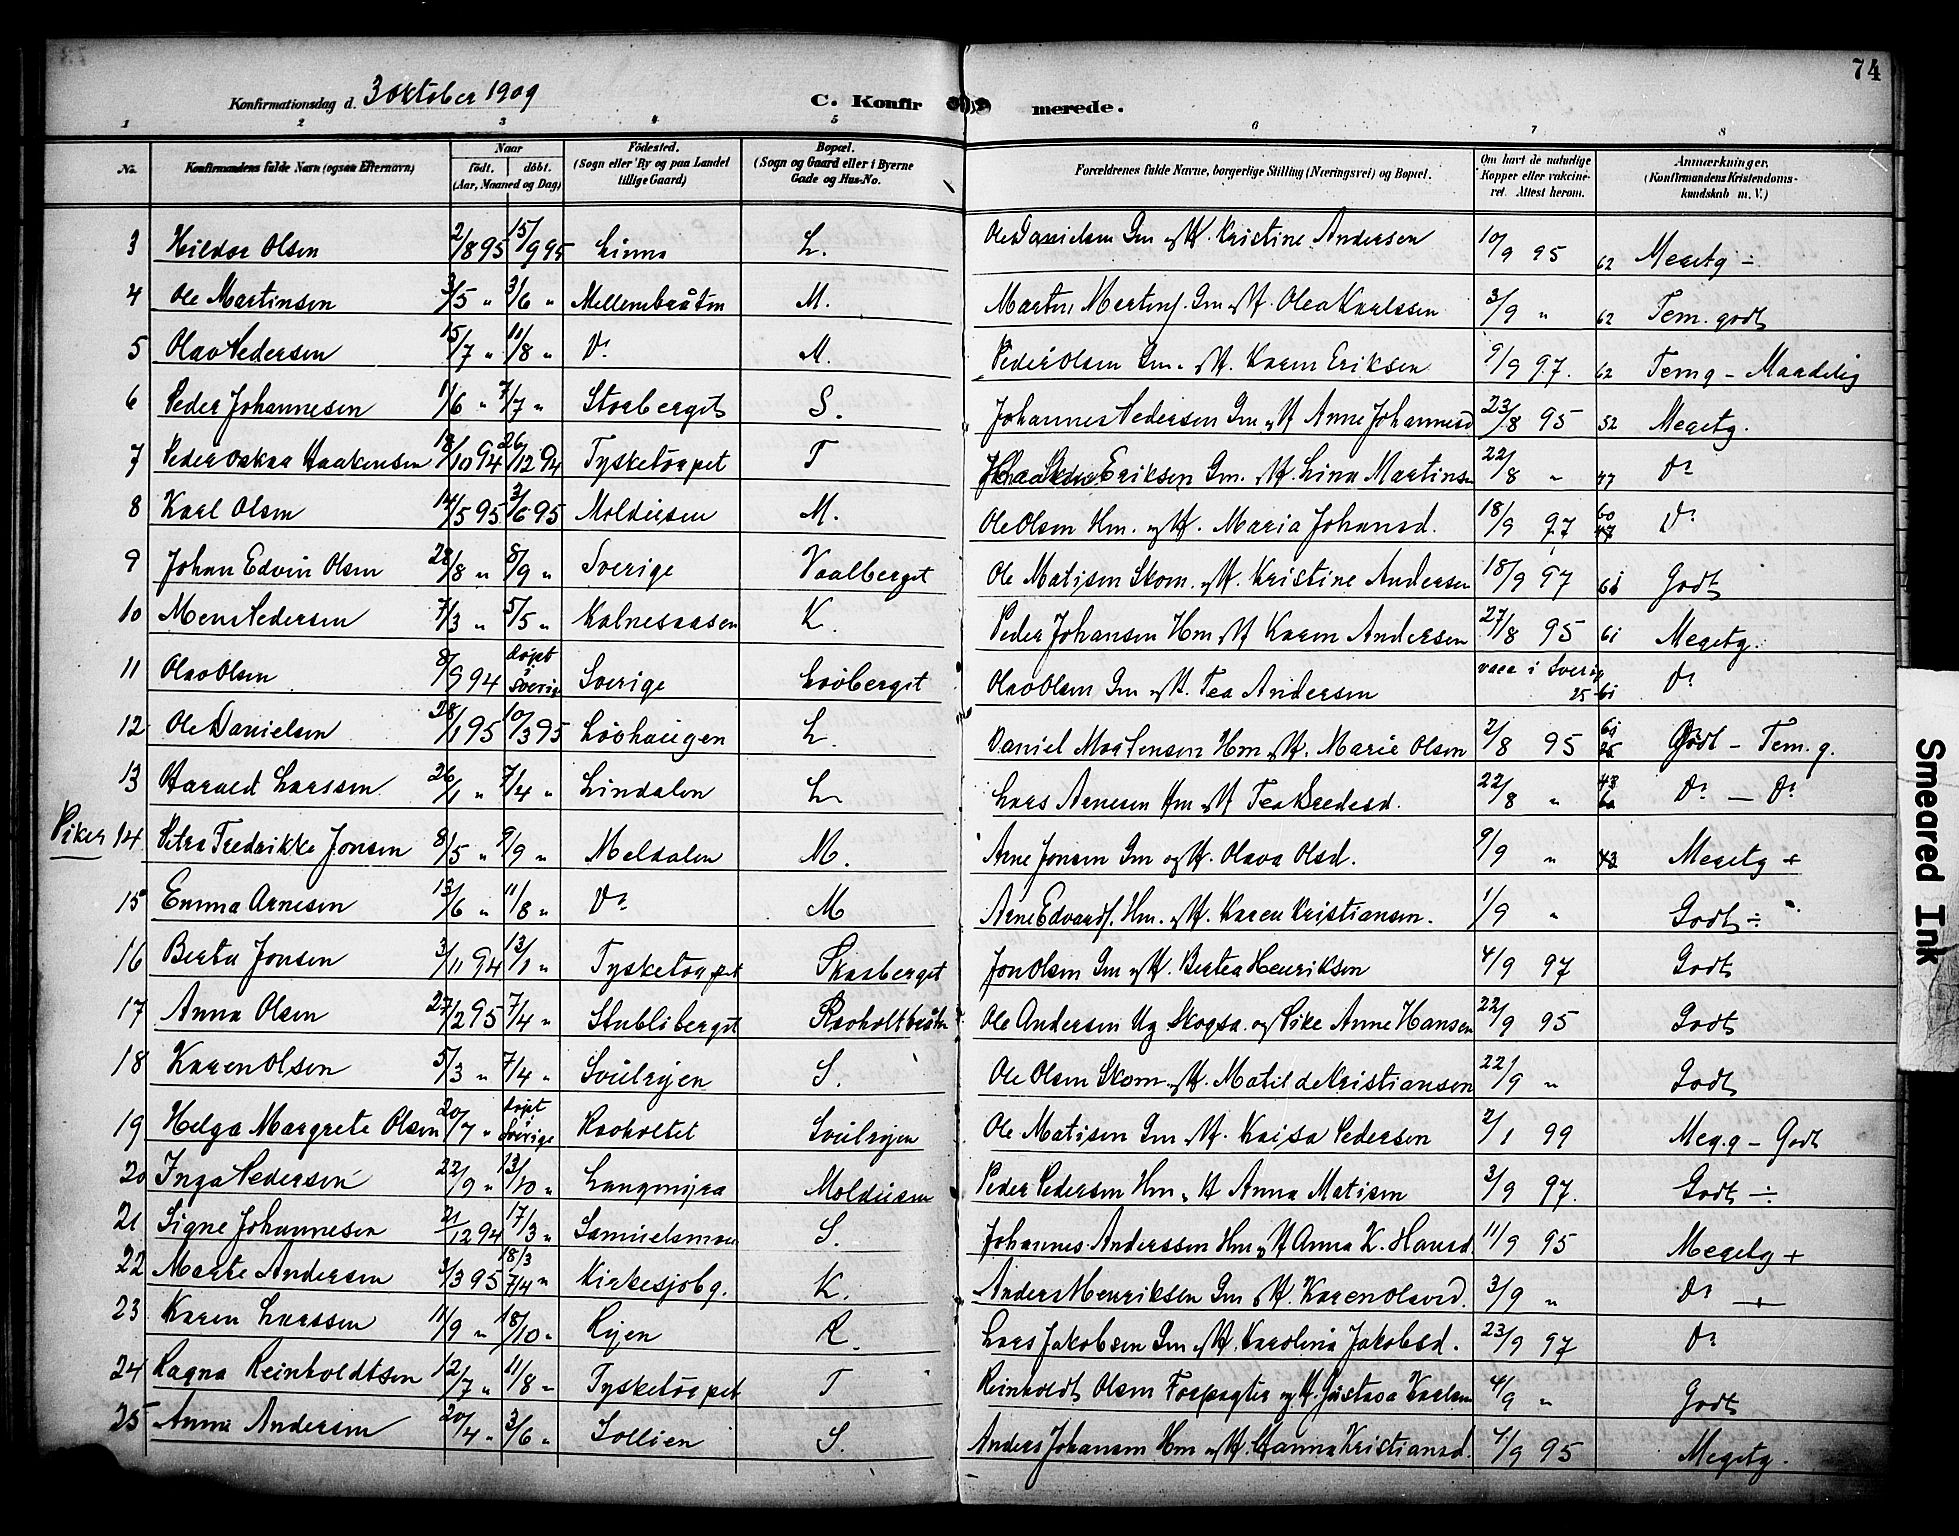 74
Konfirmationsdag d. 3 oktober 1909
C. Konfirmerede.
1 2 3 4 5 6 7 8
No. Konfirmandens fulde Navn (ogsaa Efternavn) Naar født. døbt. (Aar, Maaned og Dag) Fødested. (Sogn eller By og paa Landet tillige Gaard) Bopæl. (Sogn og Gaard eller i Byerne Gade og Hus-No. Forældrenes fulde Navne, borgerlige Stilling (Næringsvei) og Bopæl. Om havt de naturlige Kopper eller vakcineret. Attest herom. Anmærkninger. (Konfirmandens Kristendomskundskab m. V.)
3 Hildor Olsen 2/8 95 15/9 95 Linna L. Ole Danielsen Gm og H. Kristine Andersen 10/9 95 62 Megetg ÷
4 Ole Martinsen 3/5 " 3/6 " Mellembråten M. Martin Martins. Gm og H. Olea Karlssen 3/9 " 62 Tem. godt
5 Olav Pedersen 15/7 " 11/8 " Do M. Peder Olsen Gm. og H. Karen Eriksen 9/9 97. 62 Temg - Maadelig
6 Peder Johannesen 1/6 " 7/7 " Storberget S. Johannes Pedersen Gm og H Anne Johannesd 23/8 95 52 Megetg.
7 Peder Oskar Haakensen 18/10 94 26/12 94 Tysketorpet T Eriksen Gm. og H. Lina Martinsen 22/8 " 47 Do
8 Karl Olsen 14/5 95 3/6 95 Moldusen M. Ole Olsen Hm. og H. Maria Johansd. 18/9 97 60 47 Do
9 Johan Edvin Olsen 28/8 " 8/9 " Sverige Vaalberget Ole Matisen Skom. og H. Kristine Andersen 18/9 97 61 Godt
10 Mens Pedersen 7/3 " 5/5 " Kalnesaasen K. Peder Johansen Hm og H Karen Andersen 27/8 95 61 Megetg.
11 Olav Olsen 8/9 94 døpt i Sverige Sverige Lövberget Olav Olsen Gm og H. Tea Andersen vacc i Sverig 25 61 Do
12 Ole Danielsen 28/1 95 10/3 95 Lövhaugen L. Daniel Mortensen Hm og H. Marie Olsen 2/8 95 61 Godt - Tem. g.
13 Harald Larssen 26/1 " 7/4 " Lindalen L Lars Arnesen Hm og H Tea Pedersd. 22/8 " 43 Do - Do
Piker 14 Petra Fredrikke Jonsen 8/5 " 9/9 " Meldalen M. Arne Jonsen Gm og H. Olava Olsd. 9/9 " 43 Megetg +
15 Emma Arnesen 13/6 " 11/8 " Do M Arne Edvards. Hm. og H. Karen Kristiansen. 1/9 " Godt ÷
16 Berta Jonsen 3/11 94 13/1 " Tysketorpet Skasberget Jon Olsen Gm og H. Bertea Henriksen 4/9 97 Godt
17 Anna Olsen 27/2 95 7/4 " Stubliberget Ravholtbråten Ole Andersen Ug. Skogsa. og Pike Anne Hansen 22/9 95 Godt
18 Karen Olsen 5/3 " 7/4 " Svulrijen S. Ole Olsen Skom. og H. Matilde Kristiansen 22/9 " Godt
19 Helga Margrete Olsen 20/7 " døpt Sverige Ravholtet Svulrijen Ole Matisen Gm og H. Kaisa Pedersen 2/1 99 Meg.g - Godt
20 Inga Pedersen 22/9 " 13/10 " Langmyra Moldusen Peder Pedersen Hm og H Anna Matisen 3/9 97. Godt ÷
21 Signe Johannesen 21/12 94 17/3 " Samuelsmoen S. Johannes Anderssen Hm og H Anna K. Hansd. 11/9 95 Megetg +
22 Marte Andersen 3/3 95 18/3 7/4 " Kirkesjöbg. K. Anders Henriksen Gm og H. Karen Olavsd. 3/9 " Do +
23 Karen Larssen 11/9 " 18/10 " Rijen R. Lars Jakobsen Gm og H. Karolina Jakobsd. 23/9 97 Do
24 Ragna Reinholdtsen 12/7 " 11/8 " Tysketorpet T Reinholdt Olsen Forpagter og H. Gustava Karlsen 4/9 " Godt
25 Anna Andersen 20/4 " 3/6 " Sollien S. Anders Johansen Hm og H. Hanna Kristiansd. 4/9 95 Megetg.
Smeared Ink